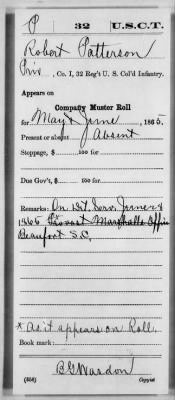 P 32 U.S.C.T.
Robert Patterson
Priv, Co. I, 32 Reg't U. S. Col'd Infantry.
Appears on
Company Muster Roll
for May & June, 1865.
Present or absent Absent
Stoppage, $ 100 for
Due Gov't, $ 100 for
Remarks: On Det. Serv. June 4
1865 Provost Marshalls Office
Beaufort S.C.
* As it appears on Roll.
Book mark:
B G Wardon
(858) Copyist